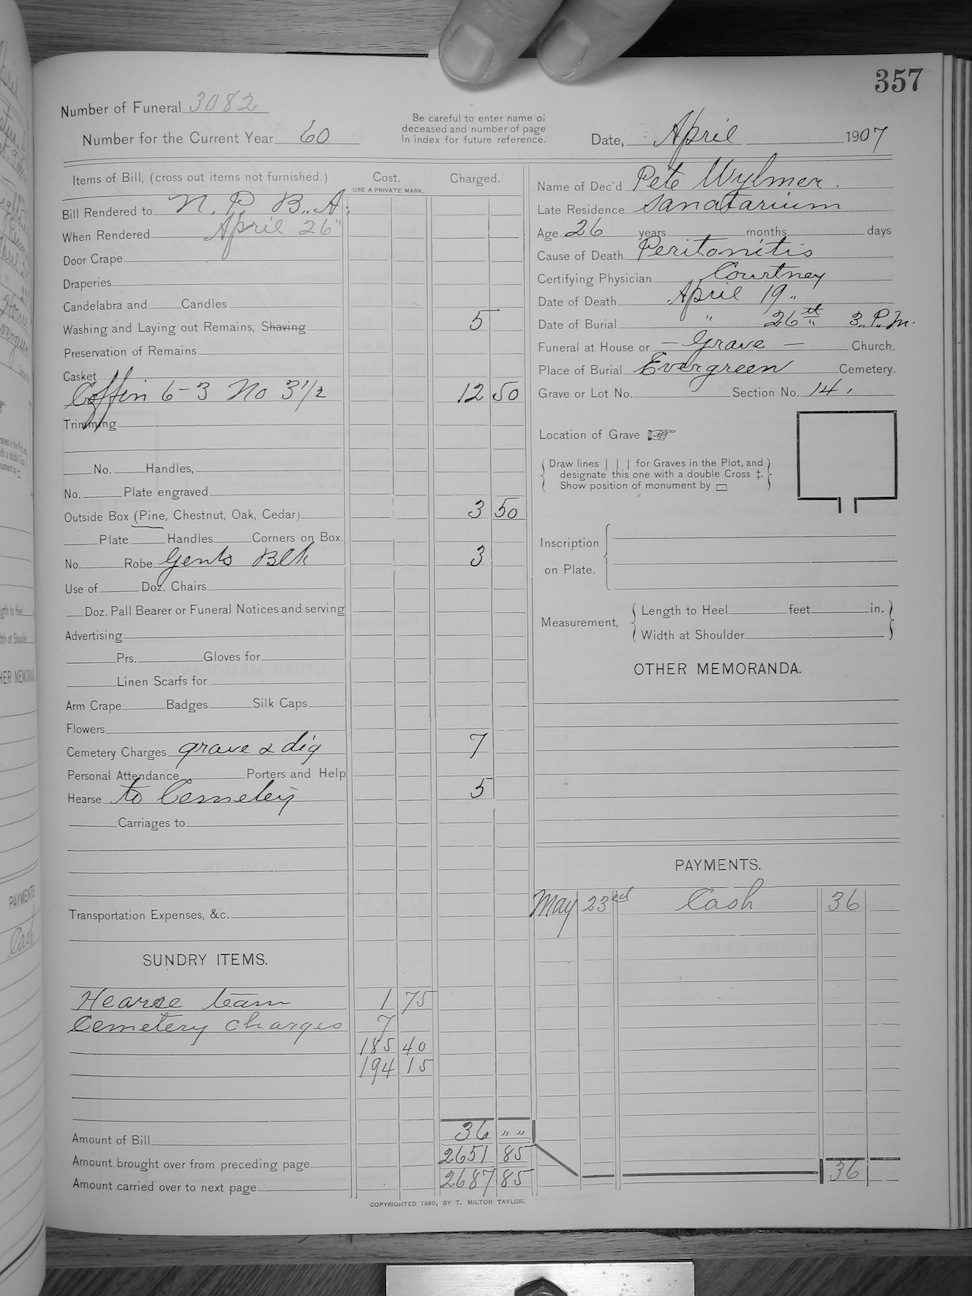 357
Number of Funeral 3082
Number for the Current Year 60
Be careful to enter name of
deceased and number of page
In index for future reference.
Date, April 1907
Items of Bill, (cross out items not furnished.)
Cost.
USE A PRIVATE MARK.
Charged.
Bill Rendered to N. P. B. A.
When Rendered April 26"
Door Crape
Draperies
Candelabra and Candles
Washing and Laying out Remains, Shaving 5
Preservation of Remains
Casket
Coffin 6-3 No 3 1/2 12 50
Trimming
No. Handles,
No. Plate engraved
Outside Box (Pine, Chestnut, Oak, Cedar) 3 50
Plate Handles Corners on Box.
No. Robe Gents Blk 3
Use of Doz. Chairs
Doz. Pall Bearer or Funeral Notices and serving
Advertising
Prs. Gloves for
Linen Scarfs for
Arm Crape Badges Silk Caps
Flowers
Cemetery Charges grave & dig 7
Personal Attendance Porters and Help
Hearse to Cemetery 5
Carriages to
Transportation Expenses, &c.
SUNDRY ITEMS.
Hearse team 1 75
Cemetery charges 7
185 40
194 15
Amount of Bill 36 " "
Amount brought over from preceding page 2651 85
Amount carried over to next page 2687 85
Name of Dec'd Pete Wylmer.
Late Residence Sanatarium
Age 26 years months days.
Cause of Death Peritonitis
Certifying Physician Courtney
Date of Death April 19"
Date of Burial " 26th 3. P. M.
Funeral at House or - Grave - Church.
Place of Burial Evergreen Cemetery.
Grave or Lot No. Section No. 14.
Location of Grave
Draw lines | | | for Graves in the Plot, and
designate this one with a double Cross ‡.
Show position of monument by ▭
Inscription
on Plate.
Measurement,
Length to Heel feet in.
Width at Shoulder
OTHER MEMORANDA.
PAYMENTS.
May 23rd Cash 36
36
COPYRIGHTED 1880, BY T. MILTON TAYLOR.